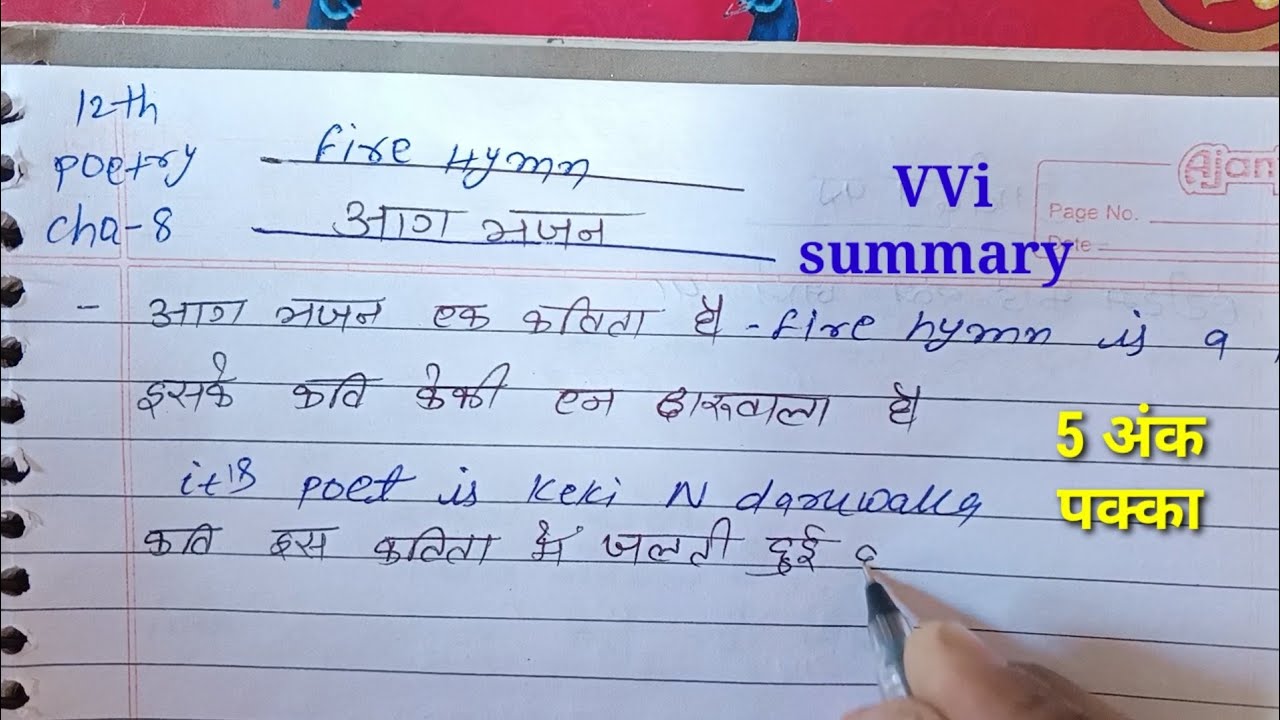 12th
poetry
cha-8
Fire Hymn
आग भजन
VVi
summary
Ajan
Page No.
Date
- आग भजन एक कविता है - fire hymn is a
इसके कवि केकी एन दारूवाला है
it's poet is keki N daruwalla
कवि इस कविता में जलती हुई
5 अंक
पक्का